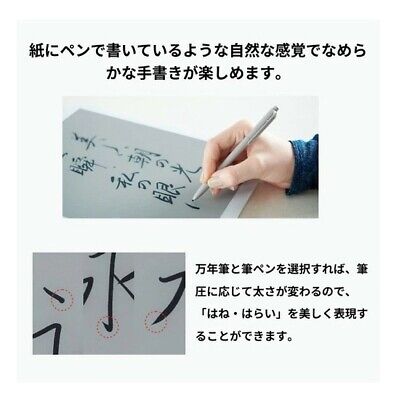 紙にペンで書いているような自然な感覚でなめら
かな手書きが楽しめます。
美しい朝の光
瞬
私の眼に
万年筆と筆ペンを選択すれば、筆
圧に応じて太さが変わるので、
「はね・はらい」を美しく表現す
ることができます。
永